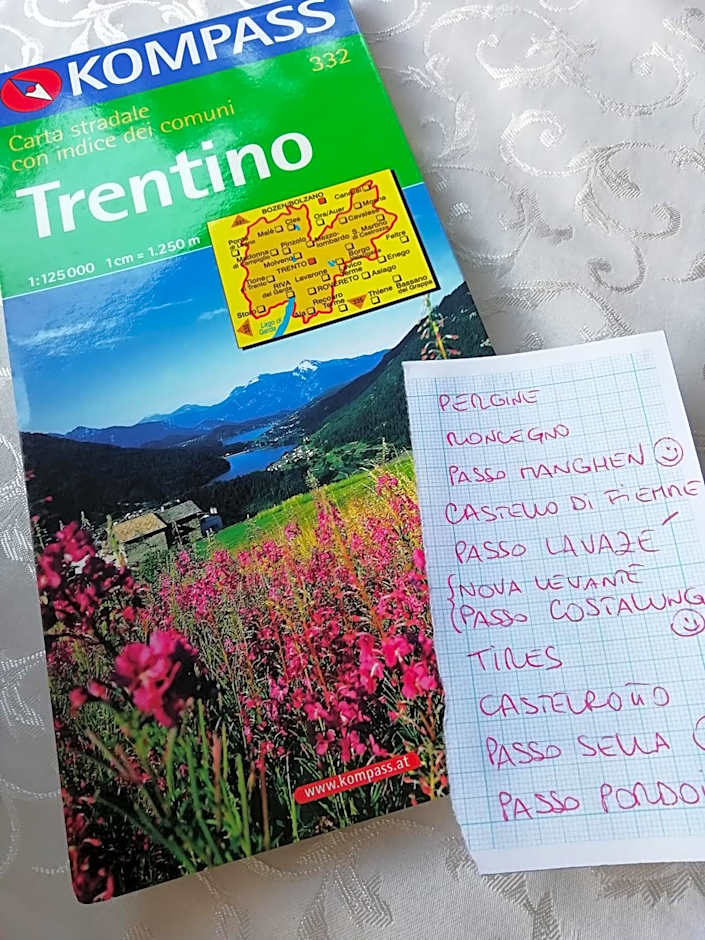 KOMPASS
332
Carta stradale
con indice dei comuni
Trentino
1:125 000 1 cm = 1.250 m
BOZEN/BOLZANO
Canazei
Moena
Cles
Ora/Auer
Cavalese
Malè
Pinzolo
Mezzo-
lombardo
S. Martino
di Castrozza
Feltre
Madonna
di Campiglio
Molveno
TRENTO
Borgo
Enego
Levico
Terme
Lavarone
Asiago
RIVA
del Garda
ROVERETO
Bassano
del Grappa
Storo
Ala
Recoaro
Terme
Thiene
Lago di
Garda
www.kompass.at
PERGINE
RONCEGNO
PASSO MANGHEN
CASTELLO DI FIEMME
PASSO LAVAZÉ
NOVA LEVANTE
PASSO COSTALUNG
TIRES
CASTELROTTO
PASSO SELLA
PASSO PORDOI